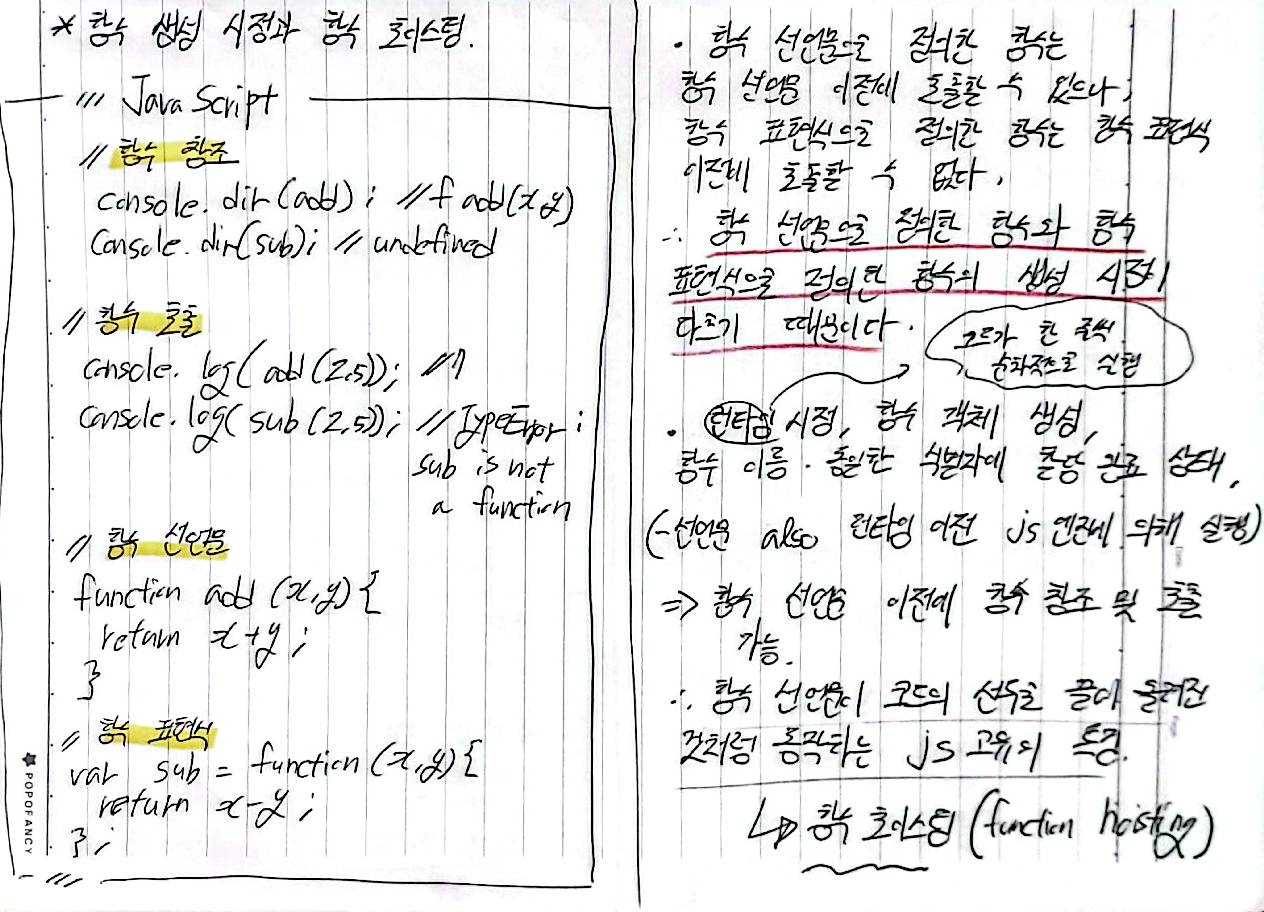 * 함수 생성 시점과 함수 호이스팅.
/// JavaScript
// 함수 참조
console.dir(add); // f add(x,y)
console.dir(sub); // undefined
// 함수 호출
console.log(add(2,5)); // 7
console.log(sub(2,5)); // TypeError:
sub is not
a function
// 함수 선언문
function add (x,y) {
return x+y;
}
// 함수 표현식
var sub = function (x,y) {
return x-y;
};
///
POPOFANCY
· 함수 선언문으로 정의한 함수는
함수 선언문 이전에 호출할 수 있으나;
함수 표현식으로 정의한 함수는 함수 표현식
이전에 호출할 수 없다.
∴ 함수 선언문으로 정의한 함수와 함수
표현식으로 정의한 함수의 생성 시점이
다르기 때문이다.
코드가 한 줄씩
순차적으로 실행
· 런타임 시점, 함수 객체 생성,
함수 이름·동일한 식별자에 할당 완료 상태.
(-선언문 also 런타임 이전 js 엔진에 의해 실행)
=> 함수 선언문 이전에 함수 참조 및 호출
가능.
∴ 함수 선언문이 코드의 선두로 끌어 올려진
것처럼 동작하는 js 고유의 특징.
↳ 함수 호이스팅 (function hoisting)